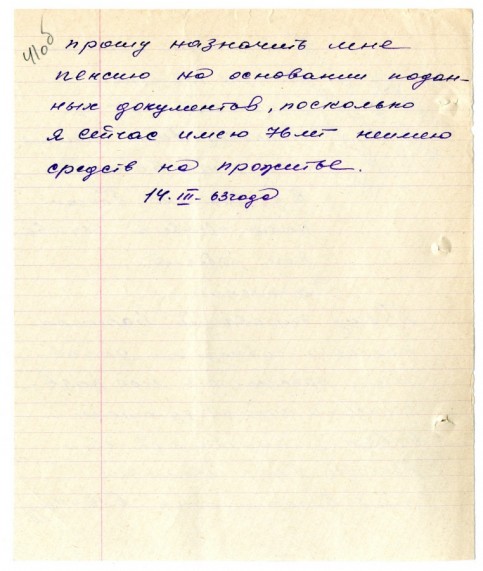 41об
прошу назначить мне
пенсию на основании подан-
ных документов, поскольку
я сейчас имею 76 лет неимею
средств на прожитье.
14. III - 63 года